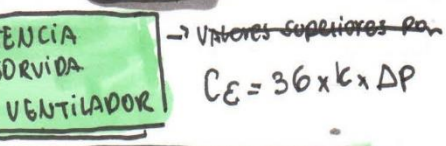 ENCIA
SORVIDA
VENTILADOR
→ VALORES SUPERIORES POR
Cε = 36 x K x ΔP